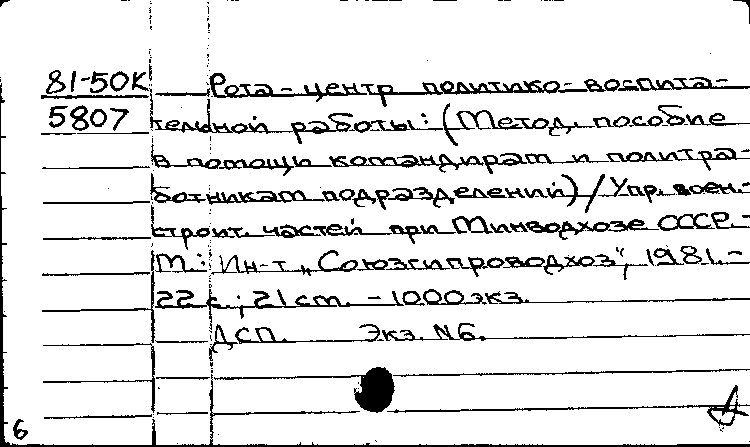 81-50К Рота-центр политико-воспита-
5807 тельной работы: (Метод. пособие
в помощь командирам и политра-
ботникам подразделений) / Упр. воен.-
строит. частей при Минводхозе СССР. -
М.: Ин-т „Союзгипроводхоз", 1981. -
22 с.; 21 cm. - 1000 экз.
ДСП. Экз. N6.
6